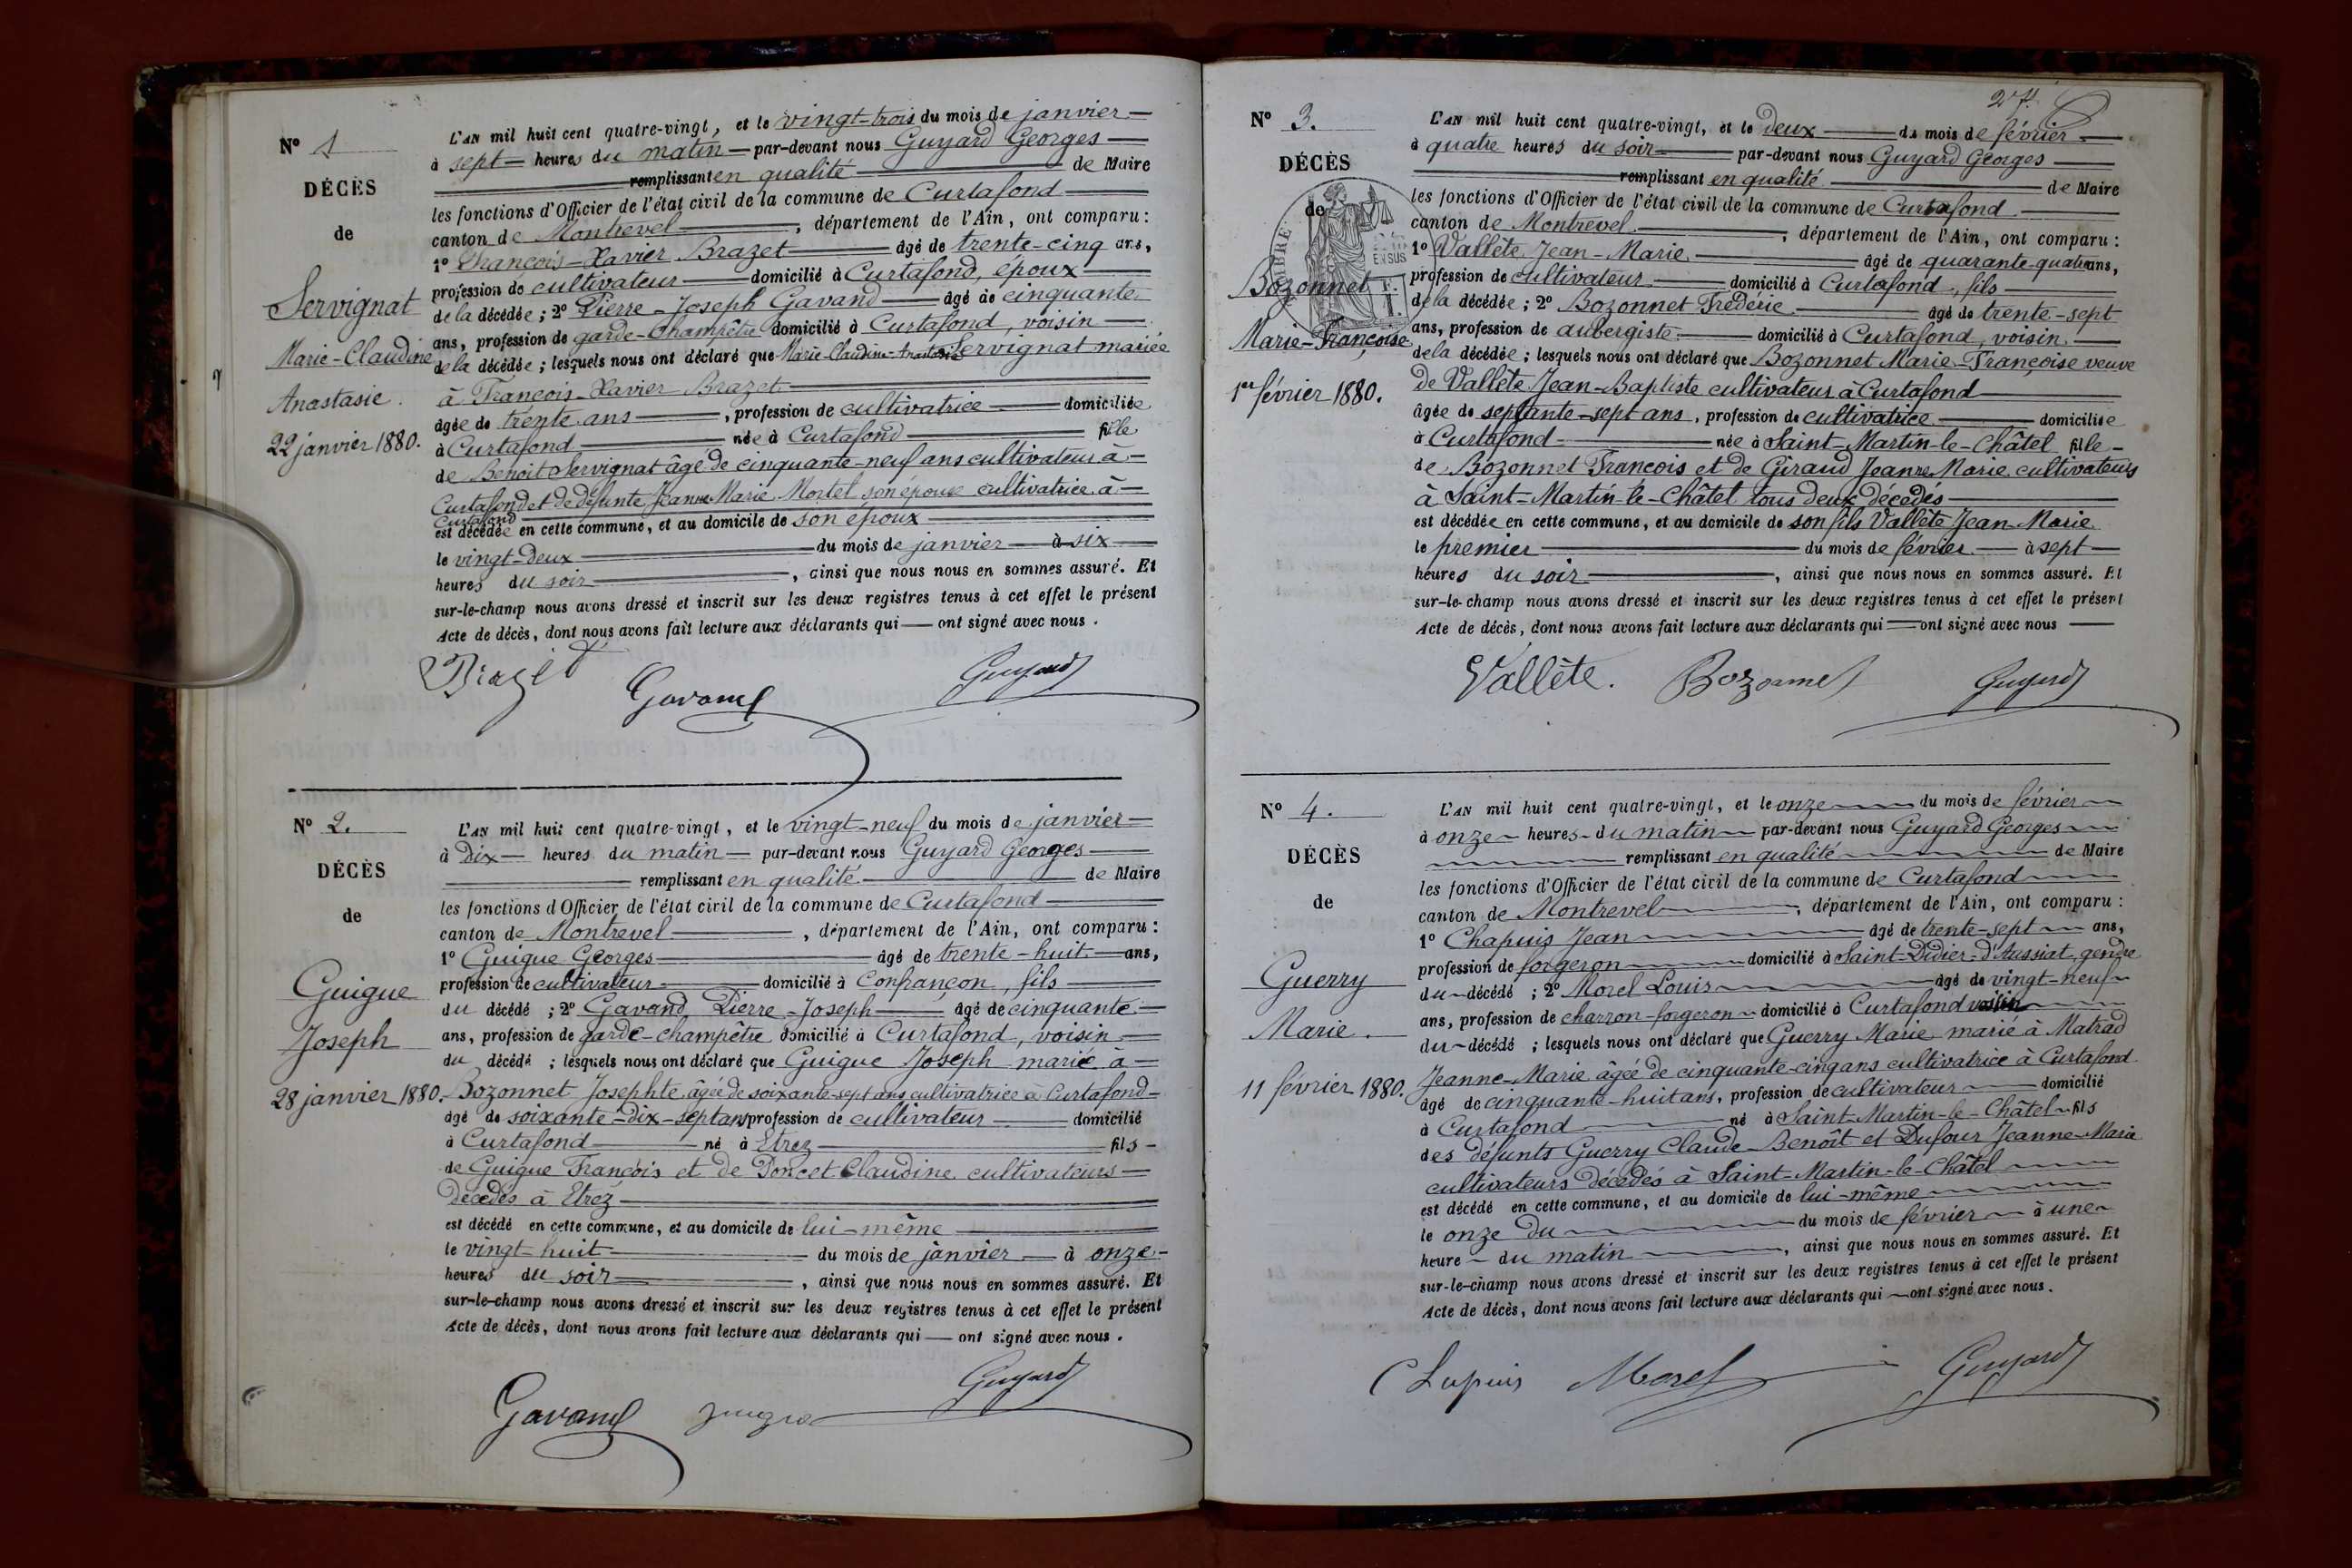 N° 1
DÉCÈS
de
Servignat
Marie-Claudine
Anastasie.
22 janvier 1880.
L'AN mil huit cent quatre-vingt, et le vingt-trois du mois de janvier
à sept heures du matin par-devant nous Guyard Georges
remplissant en qualité de Maire
les fonctions d'Officier de l'état civil de la commune de Curtafond
canton de Montrevel, département de l'Ain, ont comparu :
1° François-Xavier Brazet âgé de trente-cinq ans,
profession de cultivateur domicilié à Curtafond, époux
de la décédée ; 2° Pierre-Joseph Gavand âgé de cinquante
ans, profession de garde-champêtre domicilié à Curtafond, voisin
de la décédée ; lesquels nous ont déclaré que Marie-Claudine-Anastasie Servignat mariée
à François-Xavier Brazet
âgée de trente ans, profession de cultivatrice domiciliée
à Curtafond née à Curtafond fille
de Benoit Servignat âgé de cinquante-neuf ans cultivateur à
Curtafond et de défunte Jeanne Marie Mortel son épouse cultivatrice à
Curtafond
est décédée en cette commune, et au domicile de son époux
le vingt-deux du mois de janvier à six
heures du soir, ainsi que nous nous en sommes assuré. Et
sur-le-champ nous avons dressé et inscrit sur les deux registres tenus à cet effet le présent
Acte de décès, dont nous avons fait lecture aux déclarants qui ont signé avec nous.
Brazet Gavand Guyard
N° 2.
DÉCÈS
de
Guigue
Joseph
28 janvier 1880.
L'AN mil huit cent quatre-vingt, et le vingt-neuf du mois de janvier
à Dix heures du matin par-devant nous Guyard Georges
remplissant en qualité de Maire
les fonctions d'Officier de l'état civil de la commune de Curtafond
canton de Montrevel, département de l'Ain, ont comparu :
1° Guigue Georges âgé de trente-huit ans,
profession de cultivateur domicilié à Confrançon, fils
du décédé ; 2° Gavand Pierre-Joseph âgé de cinquante
ans, profession de garde-champêtre domicilié à Curtafond, voisin
du décédé ; lesquels nous ont déclaré que Guigue Joseph marié à
Bozonnet Josephte âgée de soixante-sept ans cultivatrice à Curtafond
âgé de soixante-dix-sept ans profession de cultivateur domicilié
à Curtafond né à Etrez fils
de Guigue François et de Poncet Claudine cultivateurs
décédés à Etrez
est décédé en cette commune, et au domicile de lui-même
le vingt-huit du mois de janvier à onze
heures du soir, ainsi que nous nous en sommes assuré. Et
sur-le-champ nous avons dressé et inscrit sur les deux registres tenus à cet effet le présent
Acte de décès, dont nous avons fait lecture aux déclarants qui ont signé avec nous.
Gavand Guyard
N° 3.
DÉCÈS
de
Bozonnet
Marie-Françoise
1er février 1880.
L'AN mil huit cent quatre-vingt, et le deux du mois de février
à quatre heures du soir par-devant nous Guyard Georges
remplissant en qualité de Maire
les fonctions d'Officier de l'état civil de la commune de Curtafond
canton de Montrevel, département de l'Ain, ont comparu :
1° Vallete Jean-Marie âgé de quarante-quatre ans,
profession de cultivateur domicilié à Curtafond, fils
de la décédée ; 2° Bozonnet Frédéric âgé de trente-sept
ans, profession de aubergiste domicilié à Curtafond, voisin
de la décédée ; lesquels nous ont déclaré que Bozonnet Marie-Françoise veuve
de Vallete Jean-Baptiste cultivateur à Curtafond
âgée de septante-sept ans, profession de cultivatrice domiciliée
à Curtafond née à Saint-Martin-le-Châtel fille
de Bozonnet François et de Giraud Jeanne Marie cultivateurs
à Saint-Martin-le-Châtel tous deux décédés
est décédée en cette commune, et au domicile de son fils Vallete Jean-Marie
le premier du mois de février à sept
heures du soir, ainsi que nous nous en sommes assuré. Et
sur-le-champ nous avons dressé et inscrit sur les deux registres tenus à cet effet le présent
Acte de décès, dont nous avons fait lecture aux déclarants qui ont signé avec nous
Vallête. Bozonnet Guyard
N° 4.
DÉCÈS
de
Guerry
Marie.
11 février 1880.
L'AN mil huit cent quatre-vingt, et le onze du mois de février
à onze heures du matin par-devant nous Guyard Georges
remplissant en qualité de Maire
les fonctions d'Officier de l'état civil de la commune de Curtafond
canton de Montrevel, département de l'Ain, ont comparu :
1° Chapuis Jean âgé de trente-sept ans,
profession de forgeron domicilié à Saint-Didier-d'Aussiat, gendre
du décédé ; 2° Morel Louis âgé de vingt-neuf
ans, profession de charron-forgeron domicilié à Curtafond voisin
du décédé ; lesquels nous ont déclaré que Guerry Marie marié à Matrad
Jeanne-Marie âgée de cinquante-cinq ans cultivatrice à Curtafond
âgé de cinquante-huit ans, profession de cultivateur domicilié
à Curtafond né à Saint-Martin-le-Châtel fils
des défunts Guerry Claude-Benoît et Dufour Jeanne-Marie
cultivateurs décédés à Saint-Martin-le-Châtel
est décédé en cette commune, et au domicile de lui-même
le onze du du mois de février à une
heure du matin, ainsi que nous nous en sommes assuré. Et
sur-le-champ nous avons dressé et inscrit sur les deux registres tenus à cet effet le présent
Acte de décès, dont nous avons fait lecture aux déclarants qui ont signé avec nous.
Chapuis Morel Guyard